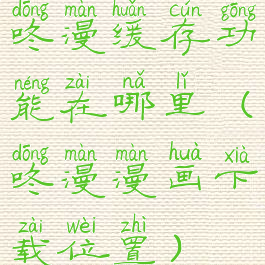 dōng màn huǎn cún gōng
咚漫缓存功
néng zài nǎ lǐ
能在哪里(
dōng màn màn huà xià
咚漫漫画下
zài wèi zhì
载位置)